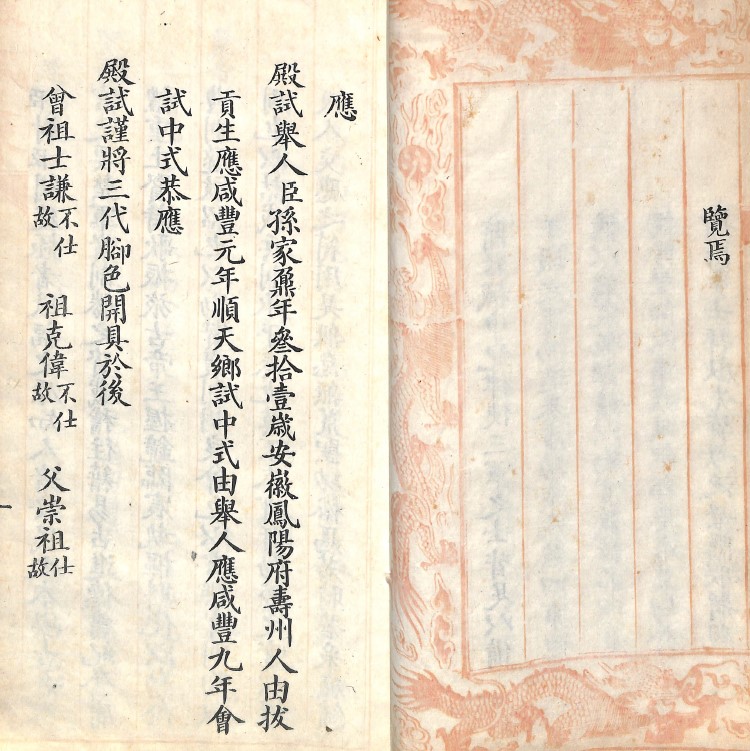 覽焉
應
殿試舉人臣孫家鼐年叅拾壹歲安徽鳳陽府壽州人由拔
貢生應咸豐元年順天鄉試中式由舉人應咸豐九年會
試中式恭應
殿試謹將三代腳色開具於後
曾祖士謙不仕故 祖克偉不仕故 父崇祖仕故